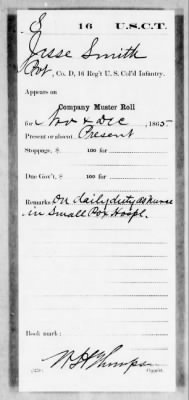 S 16 U.S.C.T.
Jesse Smith
Pvt, Co. D, 16 Reg't U. S. Col'd Infantry.
Appears on
Company Muster Roll
for Nov & Dec, 1865
Present or absent Present
Stoppage, $ 100 for
Due Gov't, $ 100 for
Remarks: On daily duty as nurse
in Small Pox Hospl.
Book mark:
Thompson
Copyist.